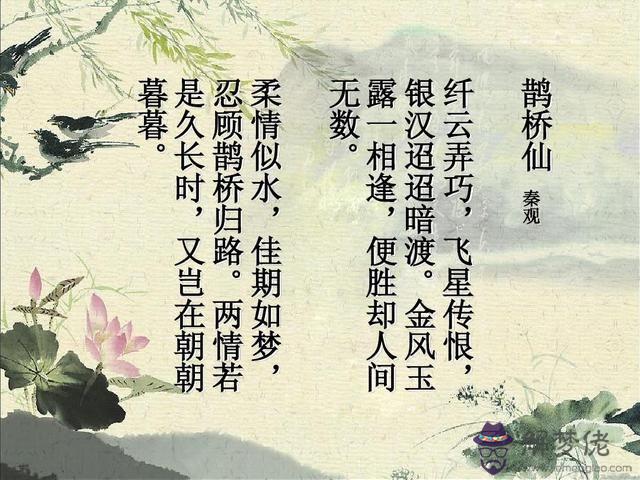 鹊桥仙
秦观
纤云弄巧，飞星传恨，
银汉迢迢暗渡。金风玉
露一相逢，便胜却人间
无数。
柔情似水，佳期如梦，
忍顾鹊桥归路。两情若
是久长时，又岂在朝朝
暮暮。
解梦佬